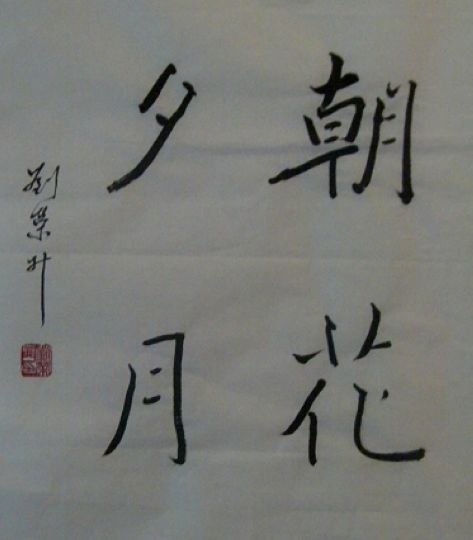 朝花
夕月
劉榮升